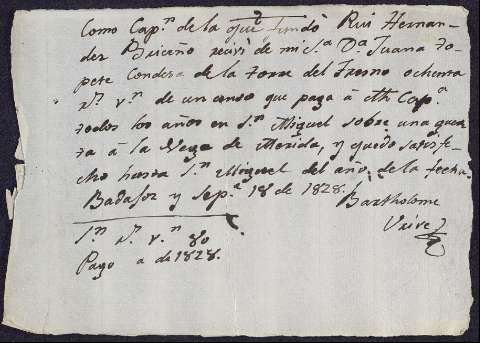 Como Cap.n de la que fundò Rui Hernan-
dez Briceño recivi de mi S.a D.a Juana To-
pete Condesa de la Torre del Fresno ochenta
r.s v.n de un censo que paga à dha Cap.a
todos los años en S.n Miguel sobre una huer
ta à la Vega de Merida, y quedo satisfe
cho hasta S.n Miguel del año de la fecha.
Badajoz y Sep.e 18 de 1828.
Bartholome
Urive
S.n r.s v.n 80
Pago a de 1828.